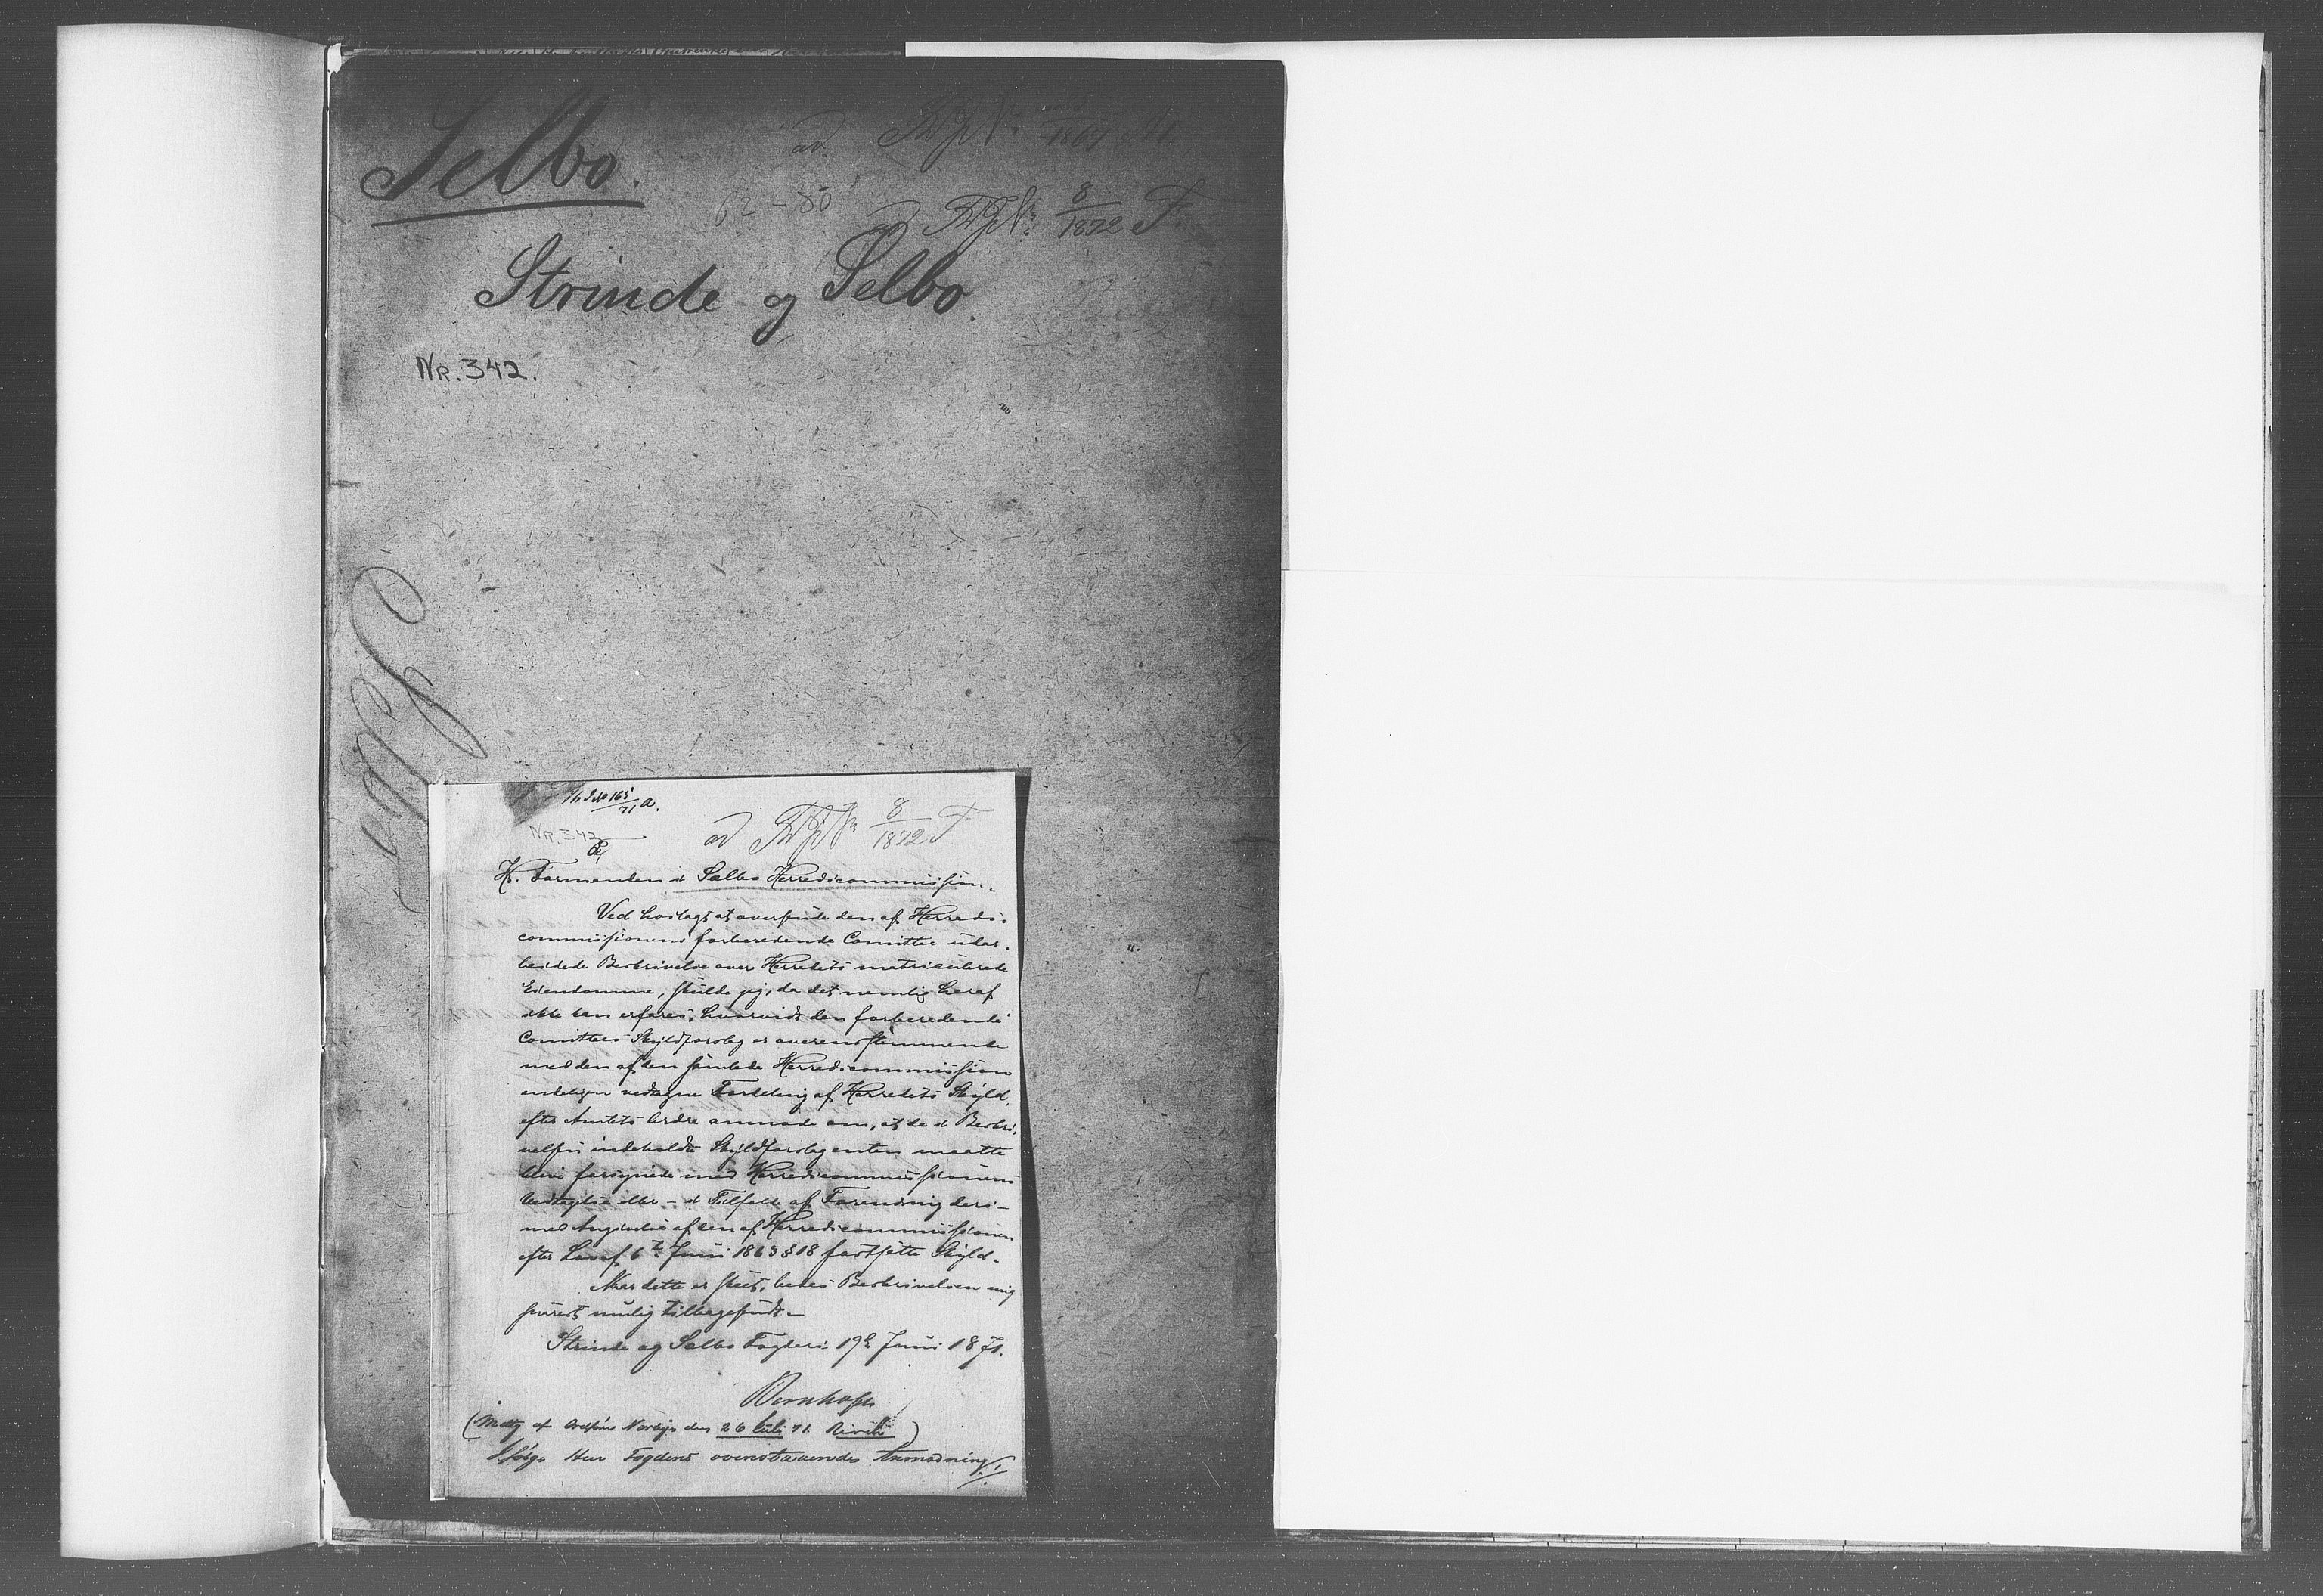 Selbo.
ad
1867
62-80
ad ThJNr 8/1872 F.
Strinde og Selbo.
Nr. 342.
Selbo
165/71 a.
Nr. 342
ad ThJNr 8/1872 F
Hr. Formanden i Sælbo Herredscommission.
Ved hoslagt at oversende den af Herreds-
commissionens forberedende Comittee udar-
beidede Beskrivelse over Herredets matriculerede
Eiendomme, skulde jeg, da det nemlig heraf
ikke kan erfares, hvorvidt den forberedende
Comittees Skyldforslag er overensstemmende
med den af den samlede Herredscommission
endeligen vedtagne Fordeling af Herredets Skyld,
efter Amtets Ordre anmode om, at de i Beskri-
velsen indeholdte Skyldforslag enten maatte
blive forsynede med Herredscommissionens
Vedtagelse eller - i Tilfælde af Forandring deri -
med Angivelse af den af Herredscommissionen
efter Lov af 6te Juni 1863 § 18 fastsatte Skyld.
Naar dette er skeet, bedes Beskrivelsen mig
snarest mulig tilbagesendt.
Strinde og Sælbo Fogderi 19de Juni 1871.
Bernhoft
(Modtg af Ordfører Norbye den 26 Juli 71.)
Ifølge Herr Fogdens ovenstaaendes Anmodning